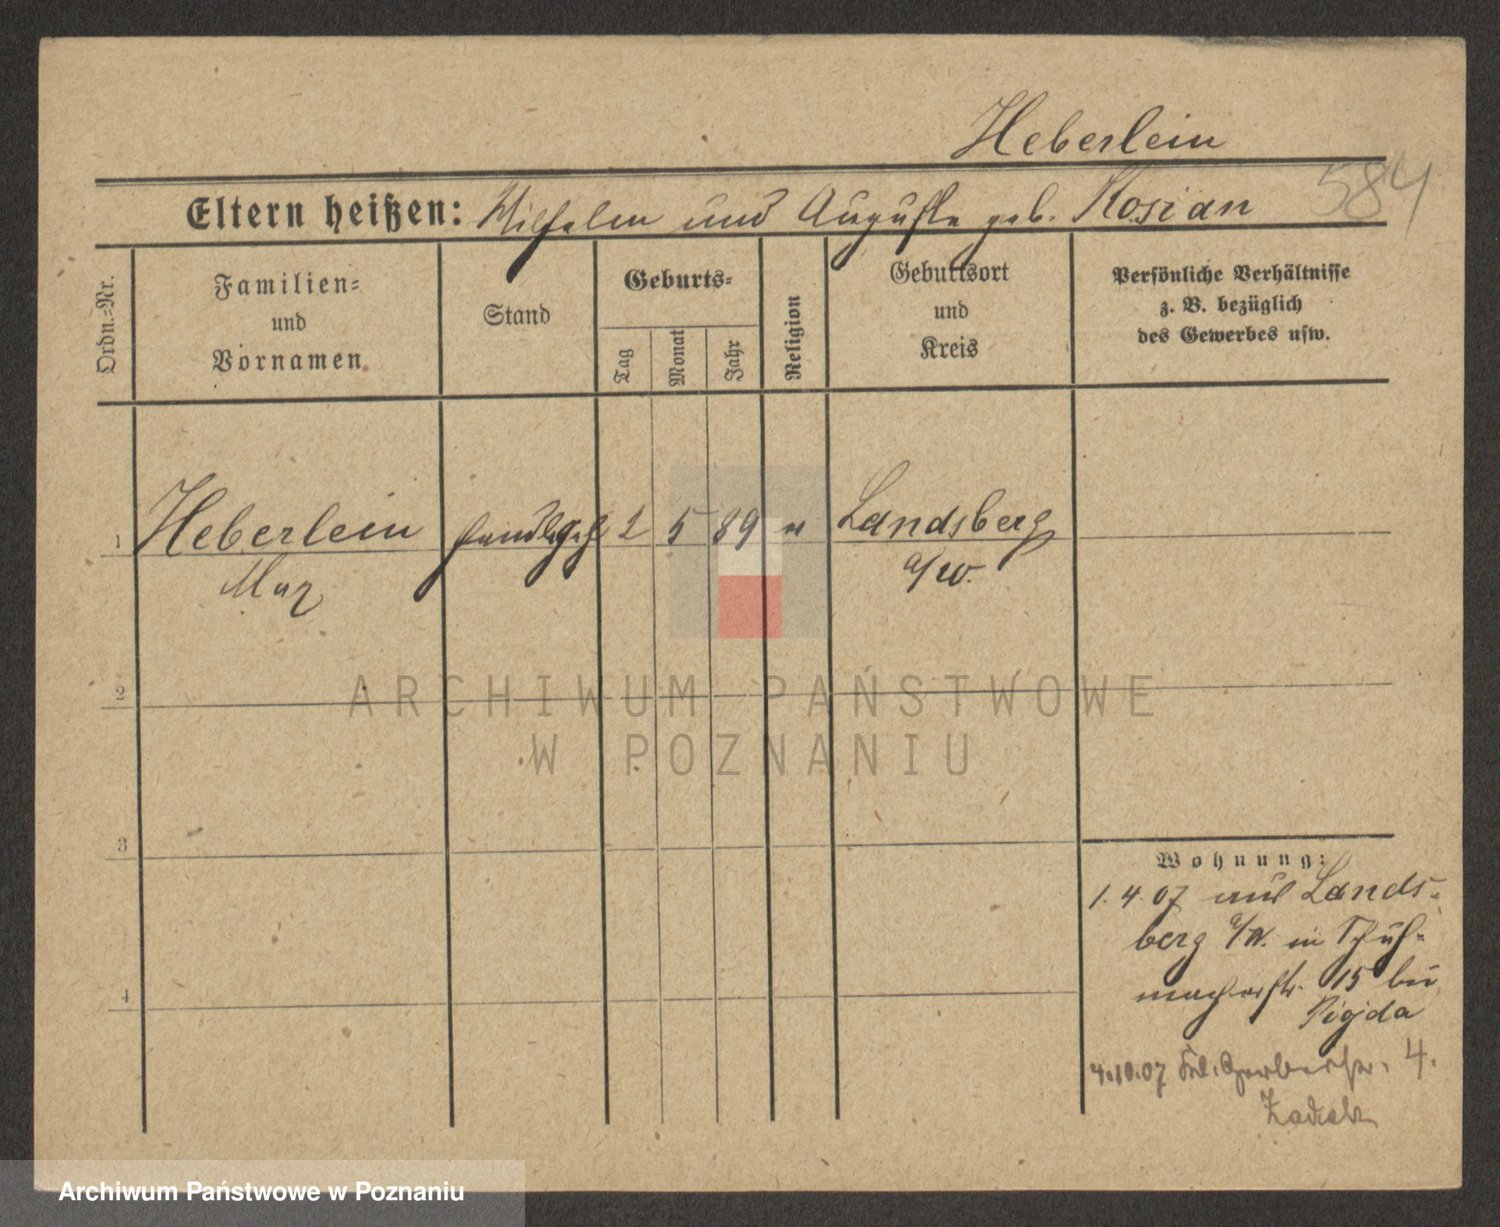 Heberlein
584
Eltern heißen: Wilhelm und Auguste geb. Kosian
Ordn.-Nr.
Familien-
und
Vornamen
Stand
Geburts-
Tag
Monat
Jahr
Religion
Geburtsort
und
Kreis
Persönliche Verhältnisse
z. B. bezüglich
des Gewerbes usw.
1 Heberlein 2 5 89 Landsberg
Max a/W.
2
3
4
ARCHIWUM PAŃSTWOWE
W POZNANIU
Wohnung:
1.4.07 aus Lands-
berg a/W. in Schuh-
macherstr. 15 bei
Pigda
4.10.07 Gerberstr. 4.
Archiwum Państwowe w Poznaniu